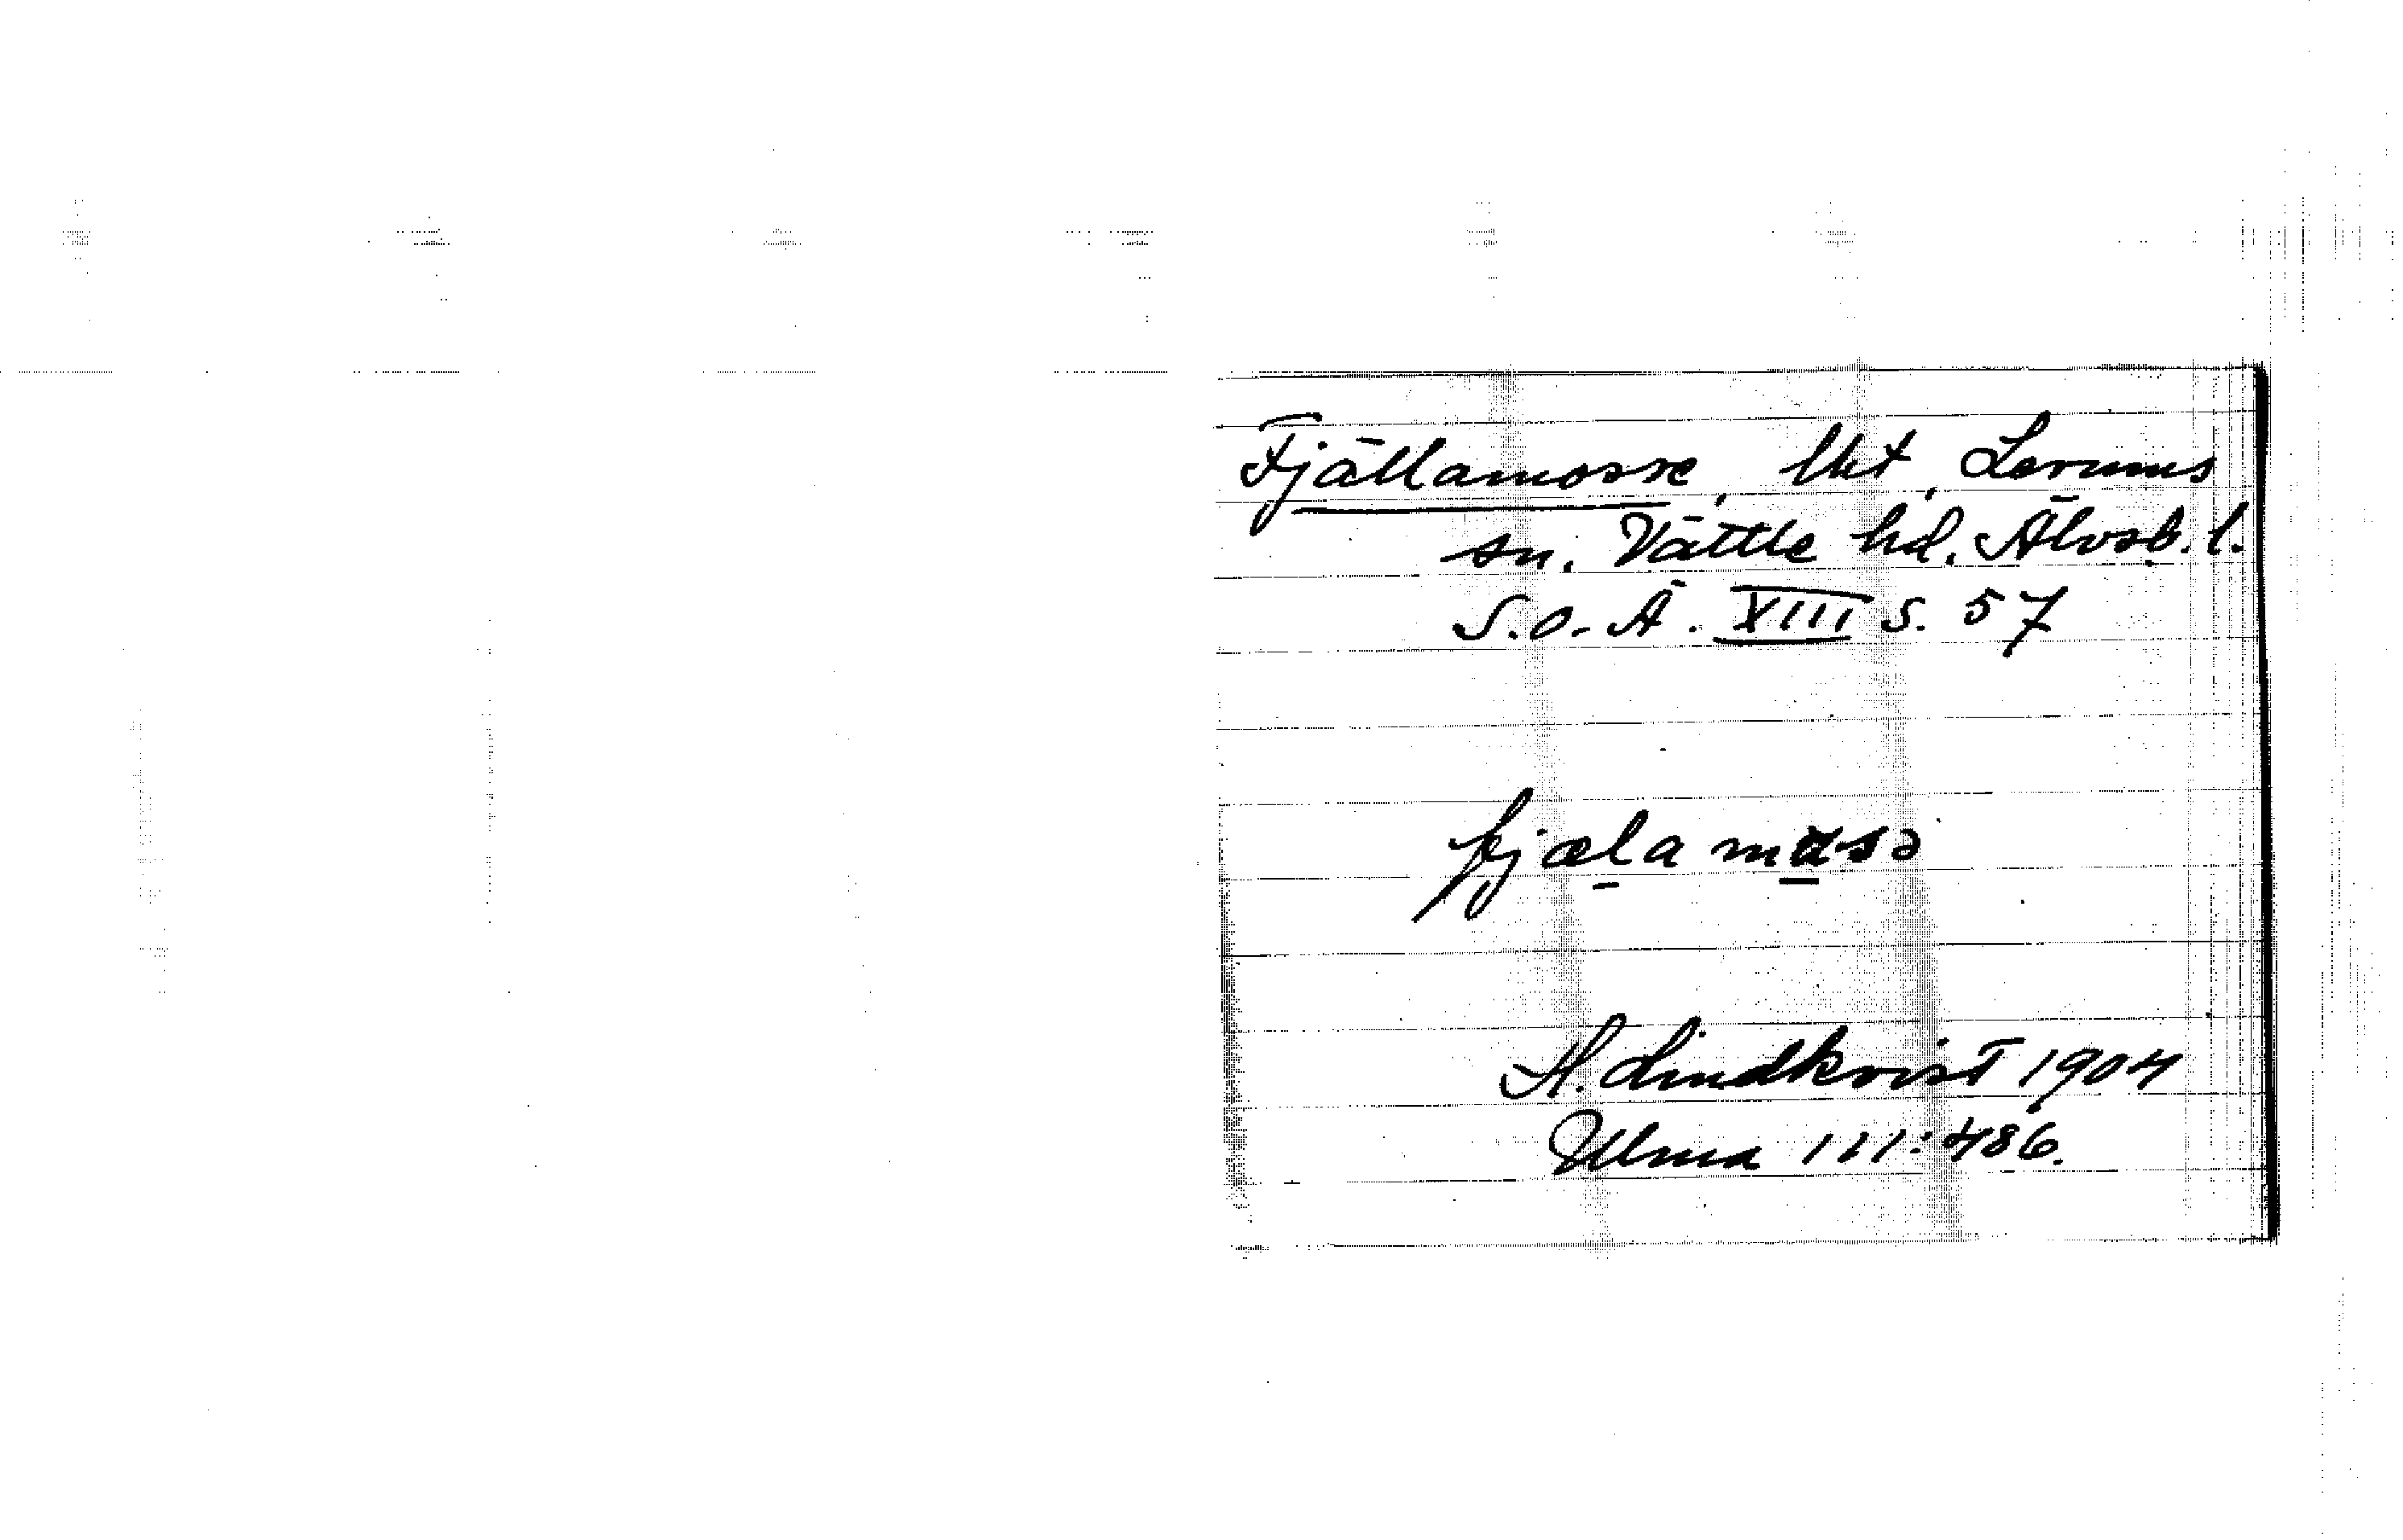 Fjällamosse, lht, Lerums
sn. Vättle hd. Älvsb. l.
S.o.Ä. XIII s. 57
fjælamasə
H. Lindkvist 1904
Ulma 111:486.